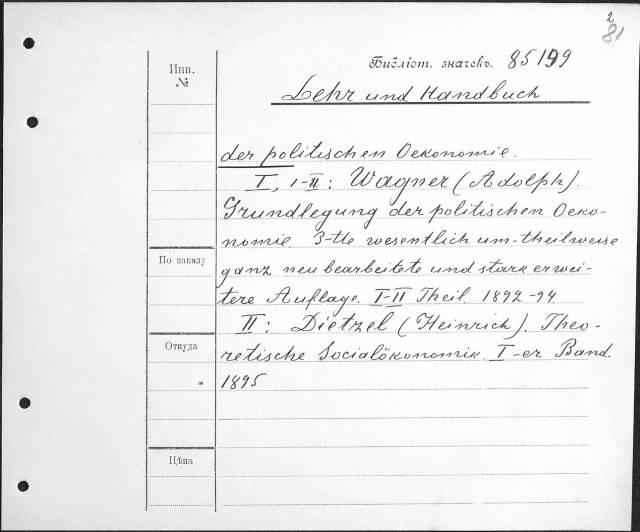 2
81
Инв.
№
Библіот. значекъ. 85199
Lehr und Handbuch
der politischen Oekonomie.
I, 1-II: Wagner (Adolph).
Grundlegung der politischen Oeko-
nomie 3-tte wesentlich um-theilweise
По заказу
ganz neu bearbeitete und stark erwei-
terte Auflage. I-II Theil. 1892-94
II: Dietzel (Heinrich). Theo-
Откуда
retische Socialökonomik. I-er Band.
1895
Цѣна